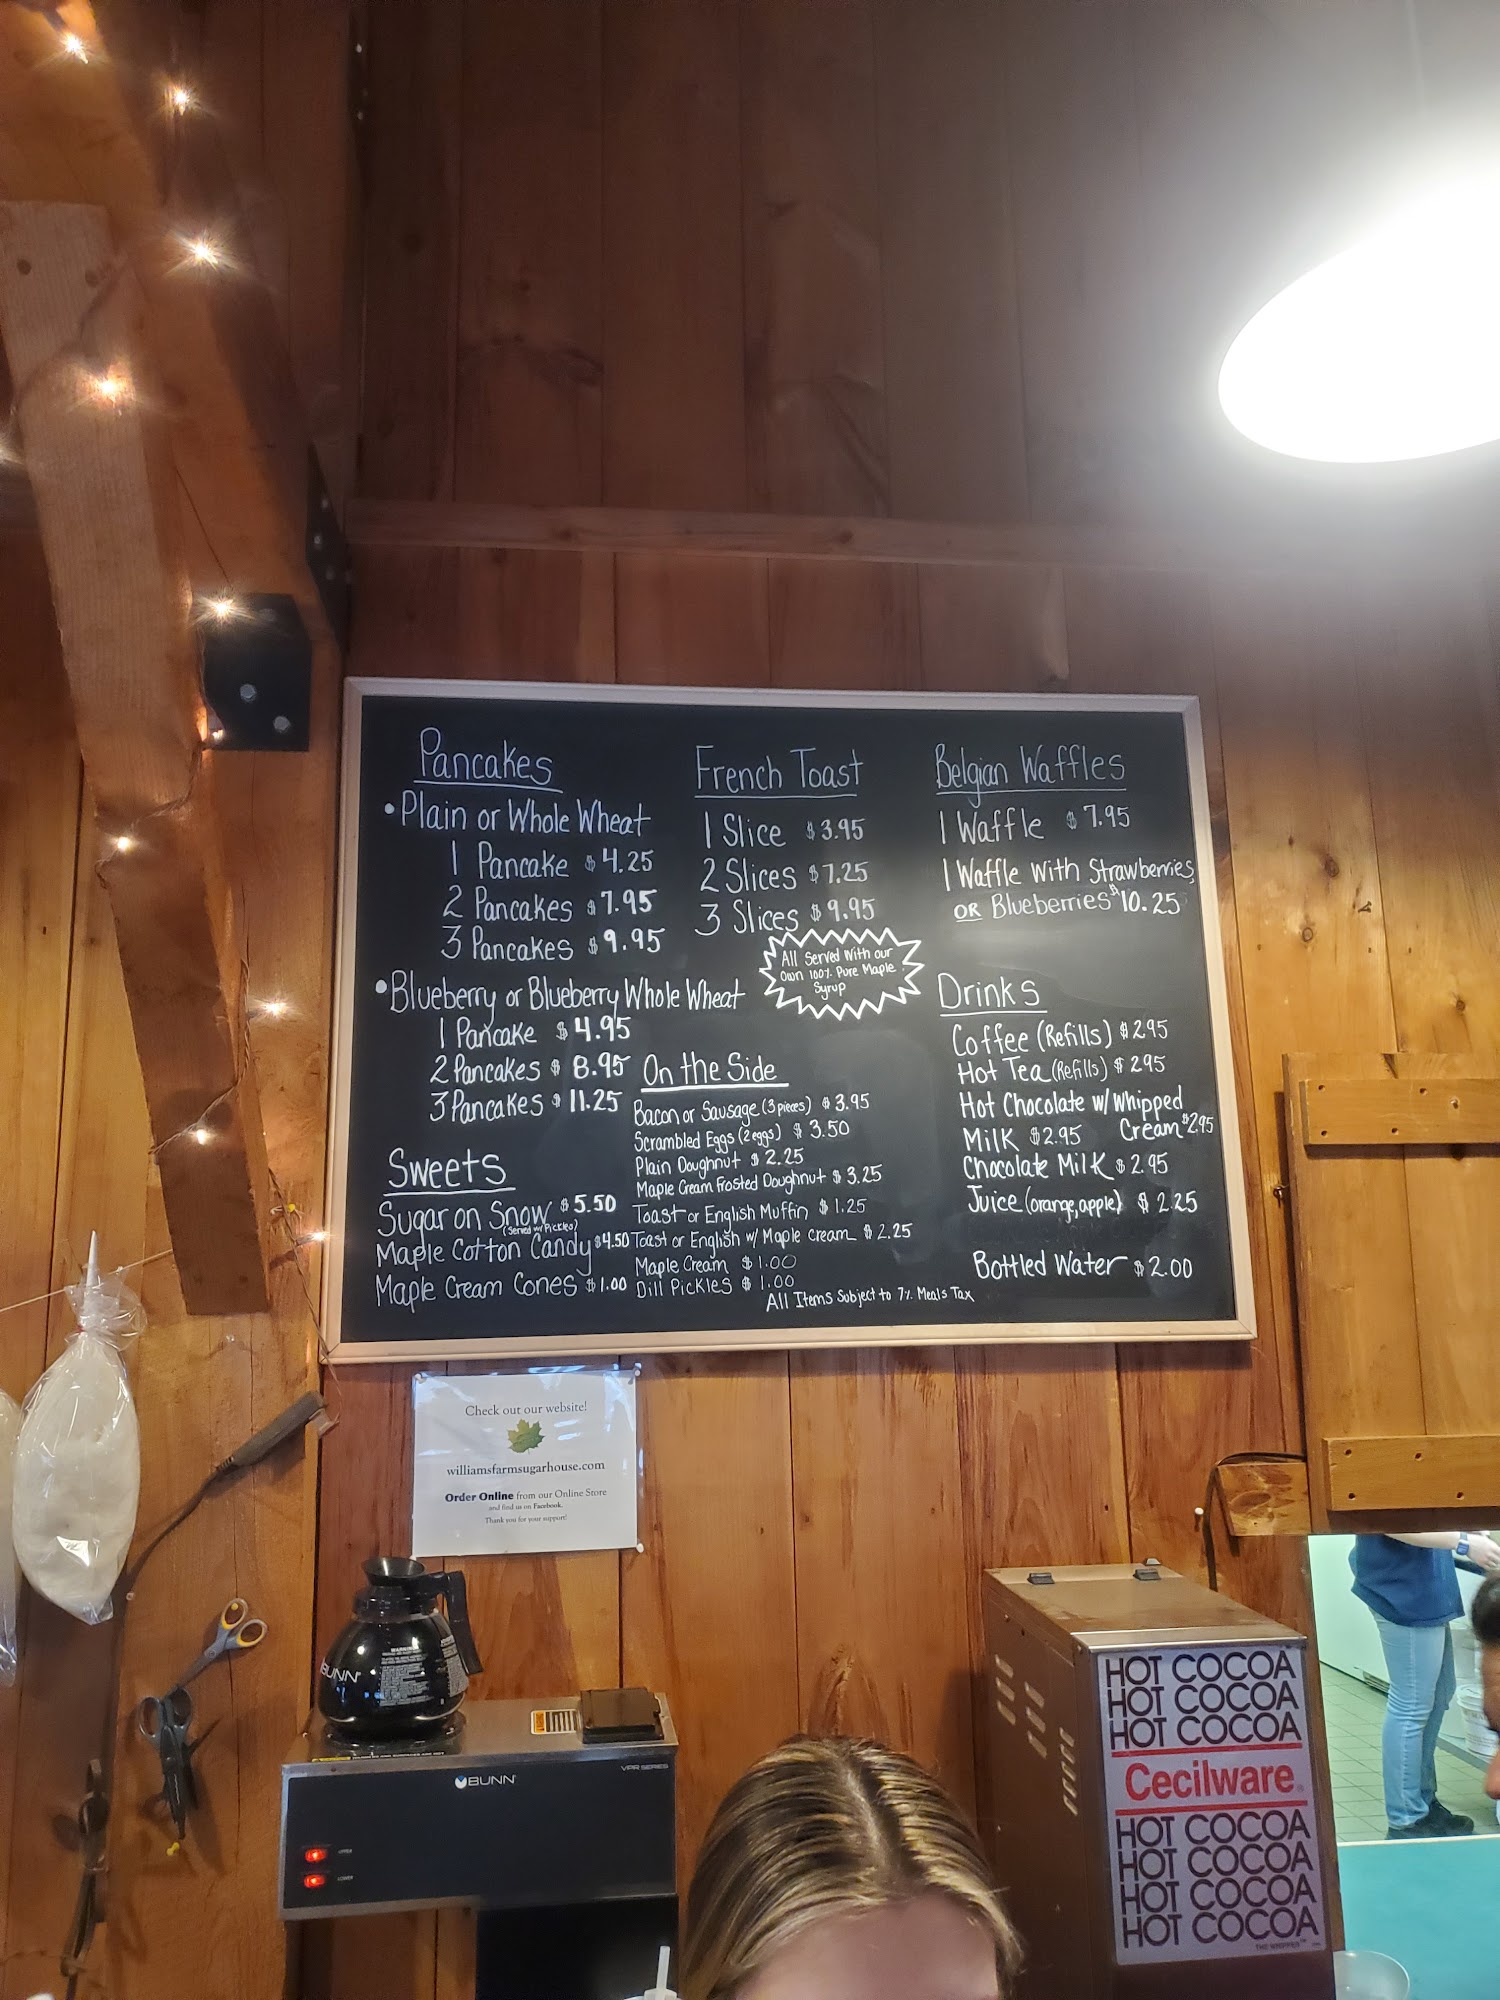 Pancakes
• Plain or Whole Wheat
1 Pancake $4.25
2 Pancakes $7.95
3 Pancakes $9.95
• Blueberry or Blueberry Whole Wheat
1 Pancake $4.95
2 Pancakes $8.95
3 Pancakes $11.25
Sweets
Sugar on Snow $5.50
(Served w/ Pickles)
Maple Cotton Candy $4.50
Maple Cream Cones $1.00
French Toast
1 Slice $3.95
2 Slices $7.25
3 Slices $9.95
All Served With our
Own 100% Pure Maple
Syrup
On the Side
Bacon or Sausage (3 pieces) $3.95
Scrambled Eggs (2 eggs) $3.50
Plain Doughnut $2.25
Maple Cream Frosted Doughnut $3.25
Toast or English Muffin $1.25
Toast or English w/ Maple Cream $2.25
Maple Cream $1.00
Dill Pickles $1.00
All Items Subject to 7% Meals Tax
Belgian Waffles
1 Waffle $7.95
1 Waffle With Strawberries
OR Blueberries $10.25
Drinks
Coffee (Refills) $2.95
Hot Tea (Refills) $2.95
Hot Chocolate w/ Whipped
Cream $2.95
Milk $2.95
Chocolate Milk $2.95
Juice (orange, apple) $2.25
Bottled Water $2.00
Check out our website!
williamsfarmsugarhouse.com
Order Online from our Online Store
and find us on Facebook.
Thank you for your support!
BUNN
WARNING
BUNN
VPR SERIES
UPPER
LOWER
HOT COCOA
HOT COCOA
HOT COCOA
Cecilware
HOT COCOA
HOT COCOA
HOT COCOA
HOT COCOA
THE WHIPPER